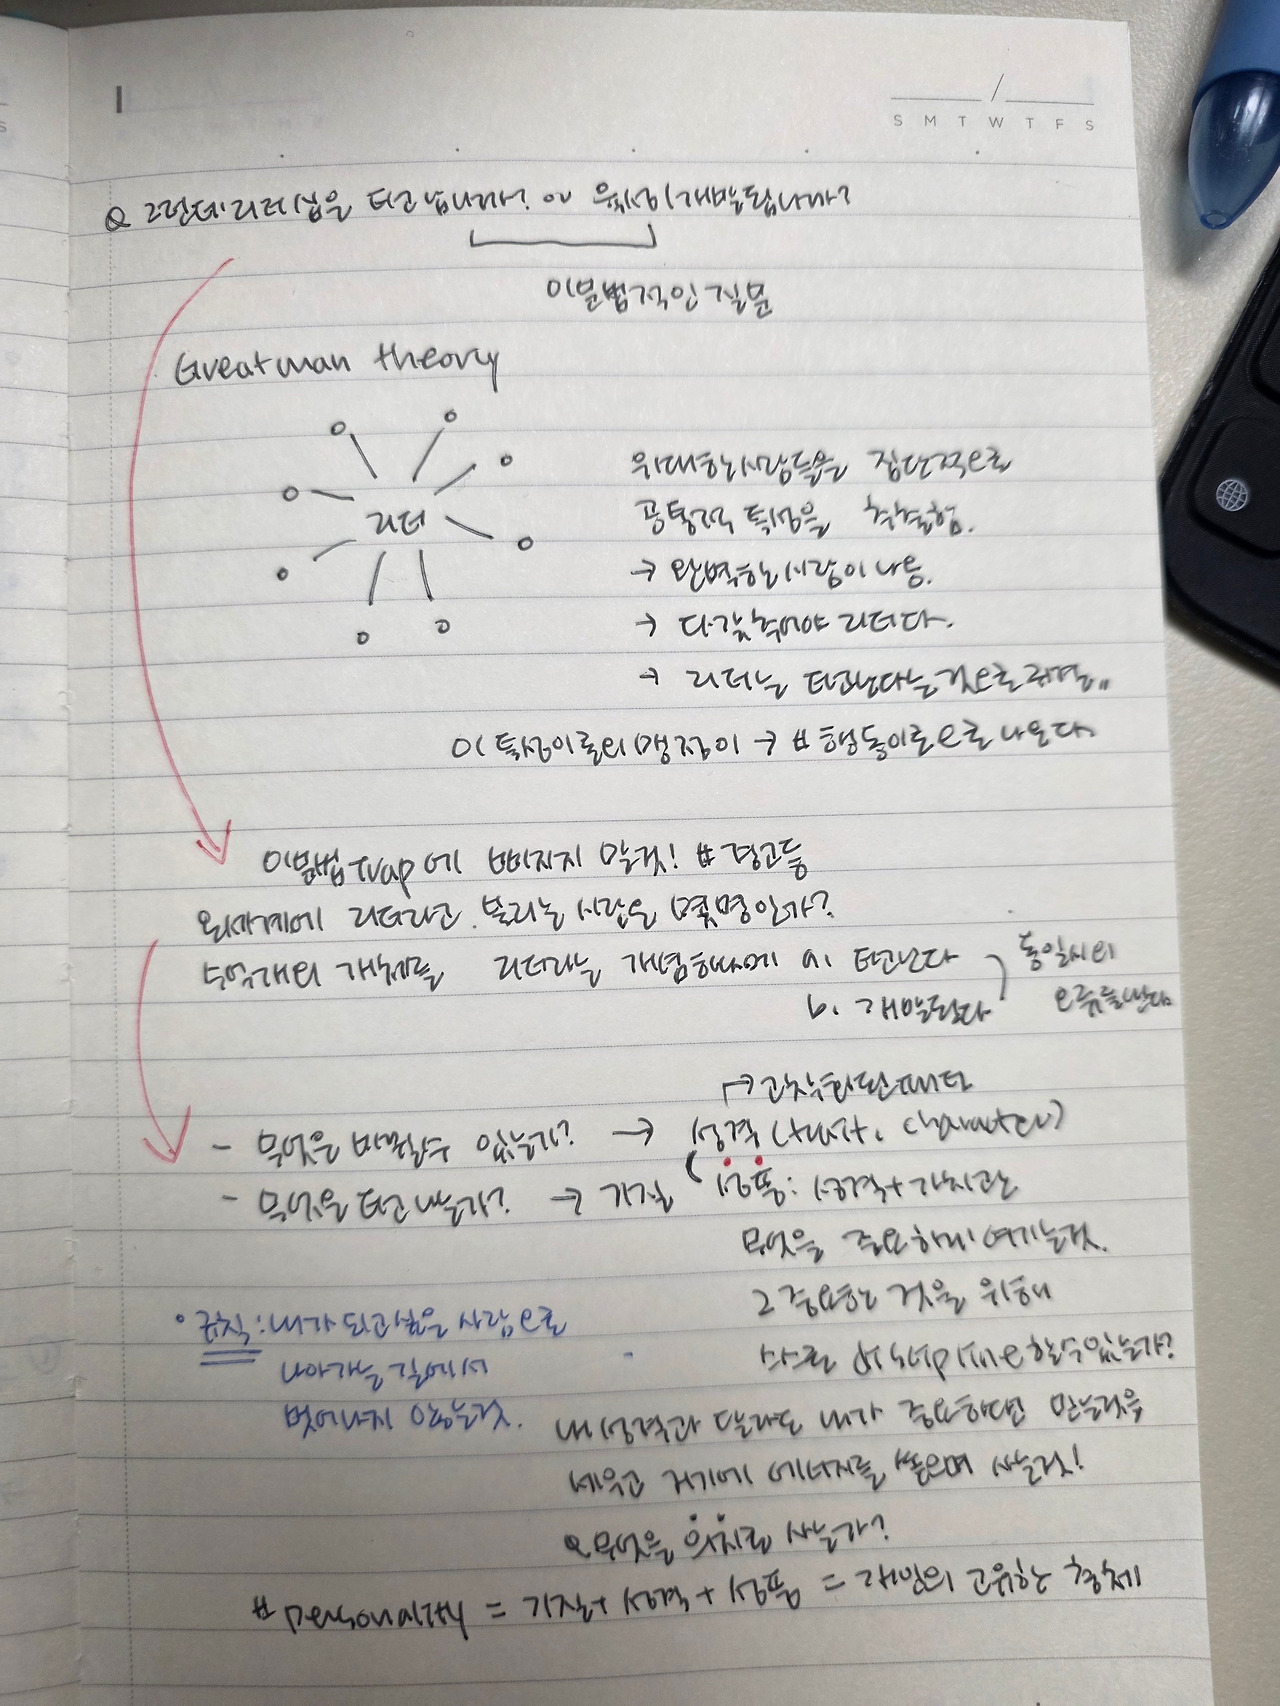 S M T W T F S
Q 그런데 리더십은 타고납니까? or 육성/개발됩니까?
이분법적인 질문
Great man theory
리더
위대한 사람들을 집단적으로
공통적 특성을 추출함.
→ 완벽한 사람이 나옴.
→ 다 갖춰야 리더다.
→ 리더는 타고난다는 것으로 귀결..
이 특성이론의 맹점이 → # 행동이론으로 나온다.
이분법 trap에 빠지지 말것! # 경고등
전세계에 리더라고 불리는 사람은 몇명인가?
수억개의 개체를 리더라는 개념하나에 a. 타고난다
b. 개발된다
동일시의
오류를 낸다.
→ 고착화된 패턴
- 무엇은 바뀔 수 있는가? → 성격 (trait, character)
- 무엇을 타고나는가? → 기질
성품: 성격+가치관
무엇을 중요하게 여기는 것.
그 중요한 것을 위해
스스로 discipline 할 수 있는가?
• 규칙: 내가 되고 싶은 사람으로
나아가는 길에서
벗어나지 않는 것.
내 성격과 달라도 내가 중요하다면 만는것을
세우고 거기에 에너지를 쏟으며 사는 것!
Q 무엇을 의지로 사는가?
# personality = 기질 + 성격 + 성품 = 개인의 고유한 총체